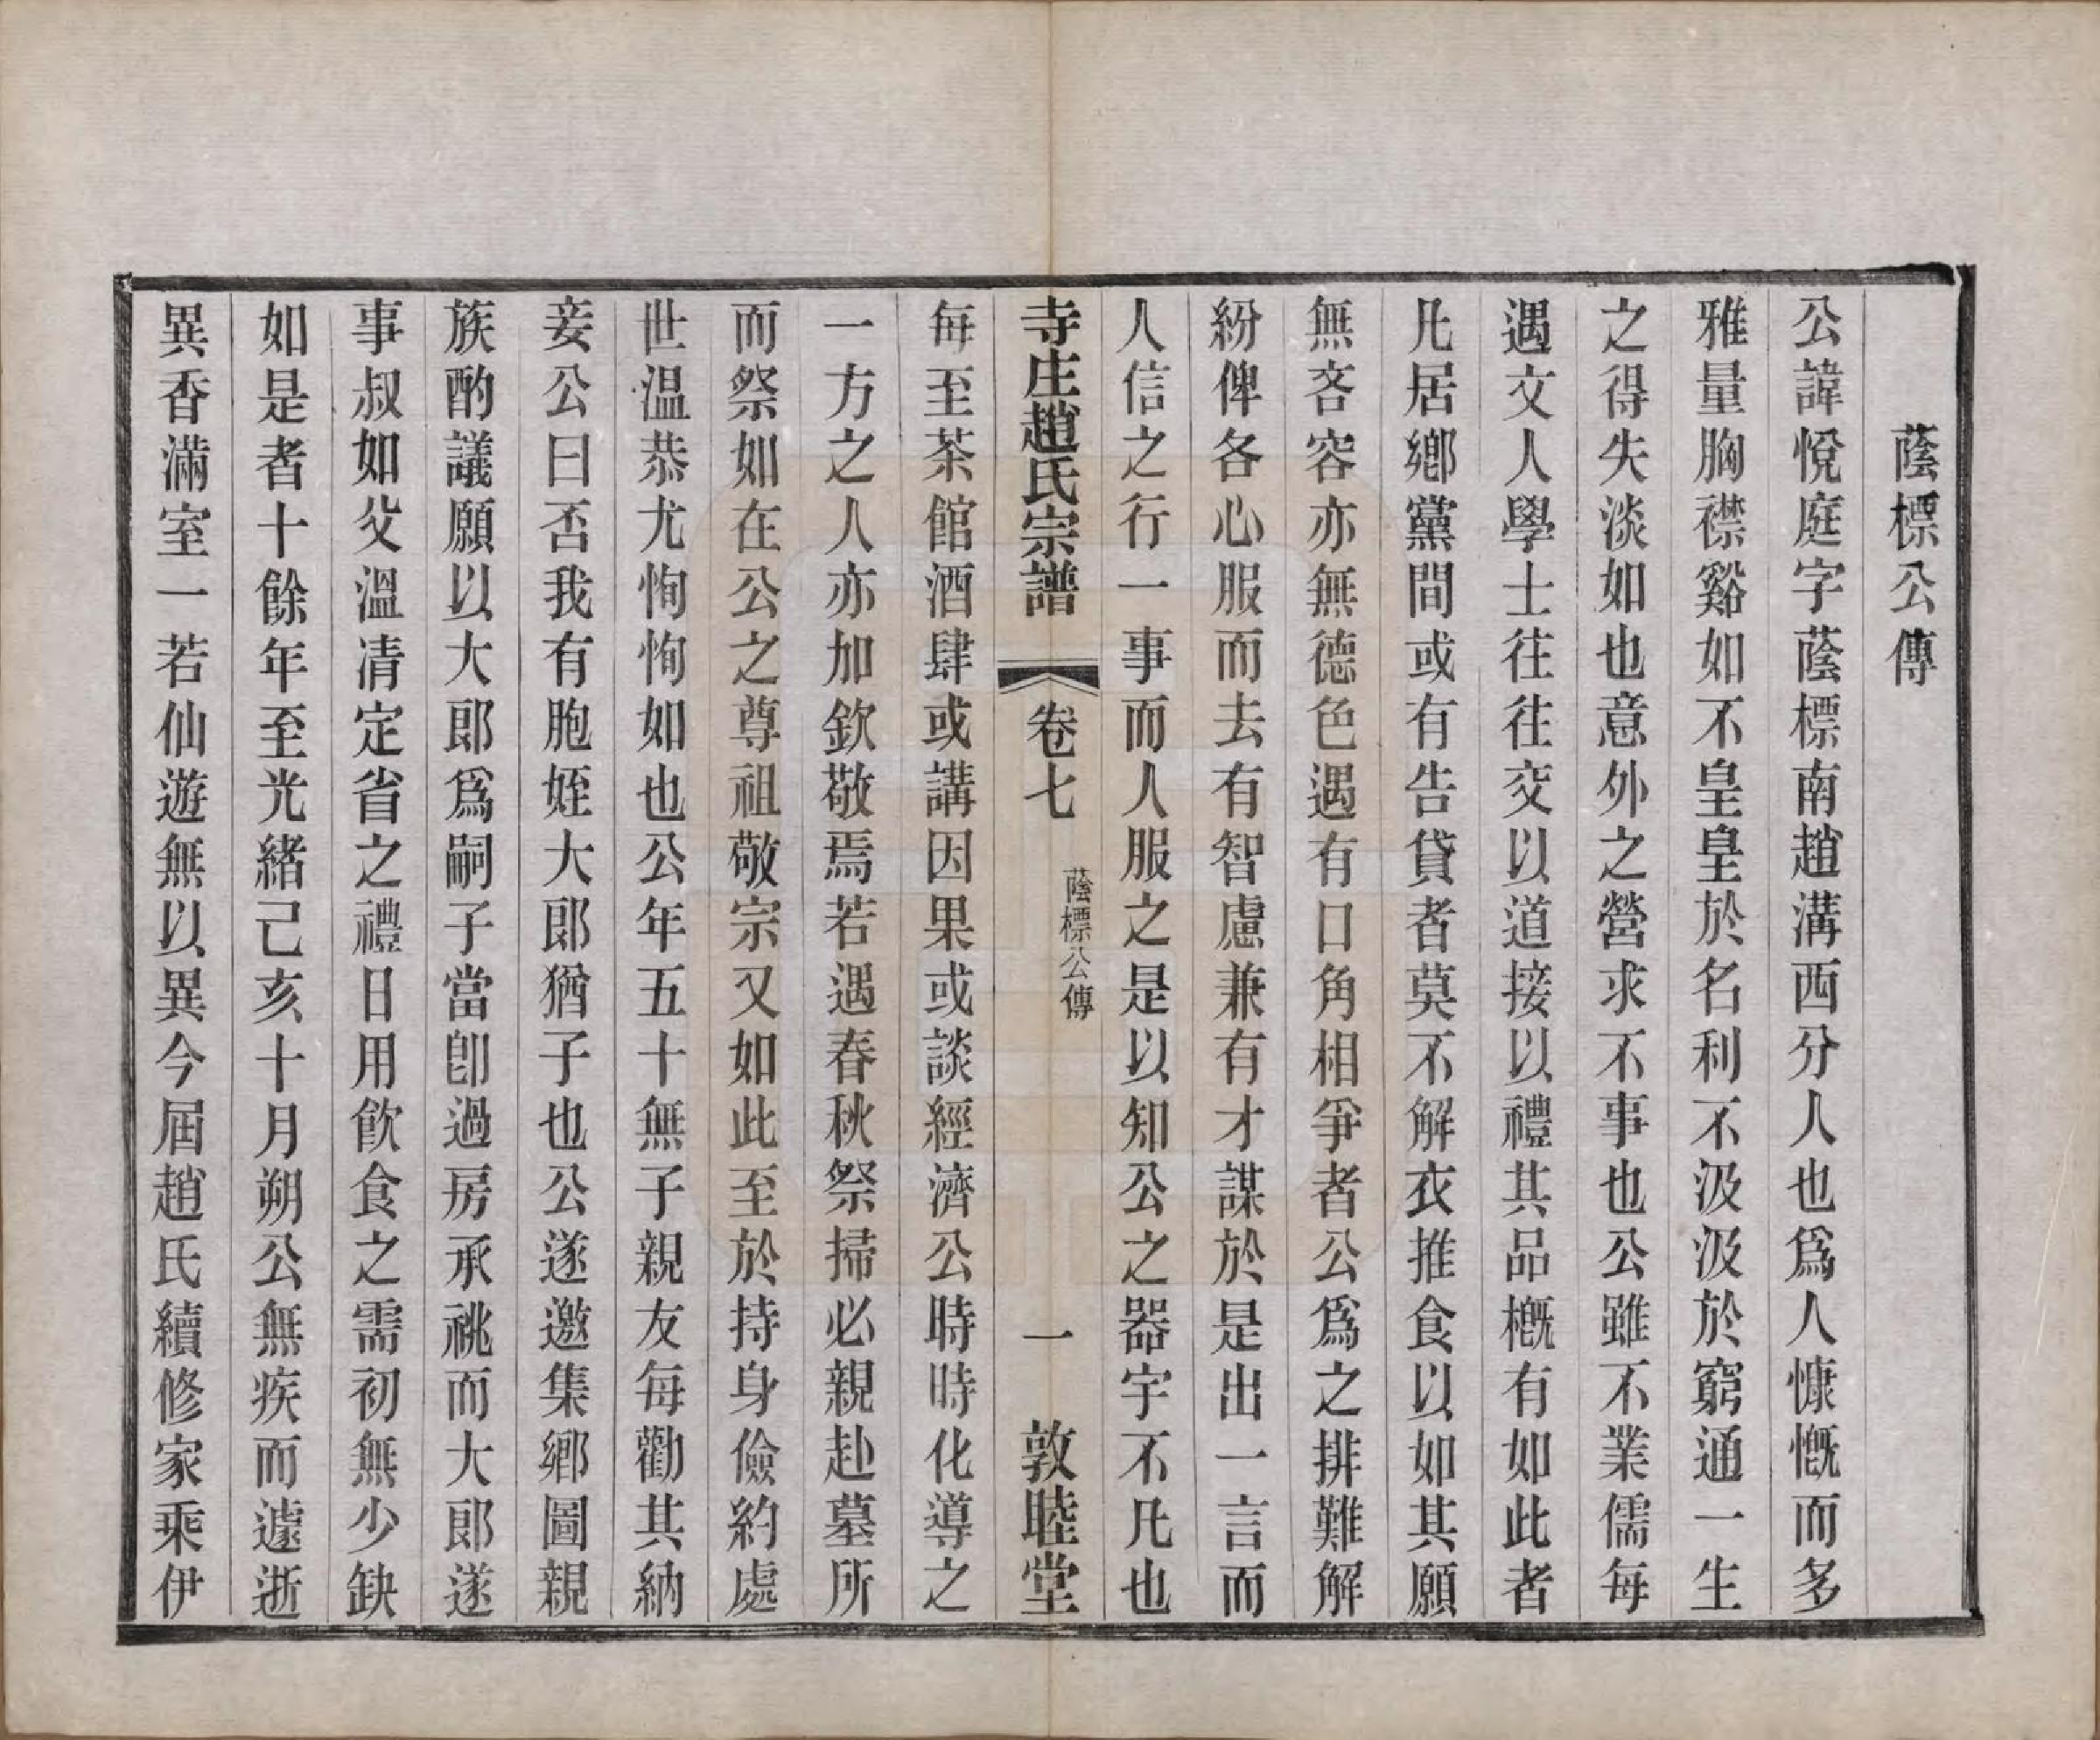 蔭標公傳
公諱悅庭字蔭標南趙溝西分人也爲人慷慨而多
雅量胸襟谿如不皇皇於名利不汲汲於窮通一生
之得失淡如也意外之營求不事也公雖不業儒每
遇文人學士往往交以道接以禮其品槪有如此者
凡居鄉黨間或有告貸者莫不解衣推食以如其願
無吝容亦無德色遇有口角相爭者公爲之排難解
紛俾各心服而去有智慮兼有才謀於是出一言而
人信之行一事而人服之是以知公之器宇不凡也
寺庄趙氏宗譜 卷七 蔭標公傳 一 敦睦堂
每至茶館酒肆或講因果或談經濟公時時化導之
一方之人亦加欽敬焉若遇春秋祭掃必親赴墓所
而祭如在公之尊祖敬宗又如此至於持身儉約處
世温恭尤恂恂如也公年五十無子親友每勸其納
妾公曰否我有胞姪大郎猶子也公遂邀集鄉圖親
族酌議願以大郎爲嗣子當卽過房承祧而大郎遂
事叔如父溫凊定省之禮日用飮食之需初無少缺
如是者十餘年至光緖己亥十月朔公無疾而遽逝
異香滿室一若仙遊無以異今屆趙氏續修家乘伊